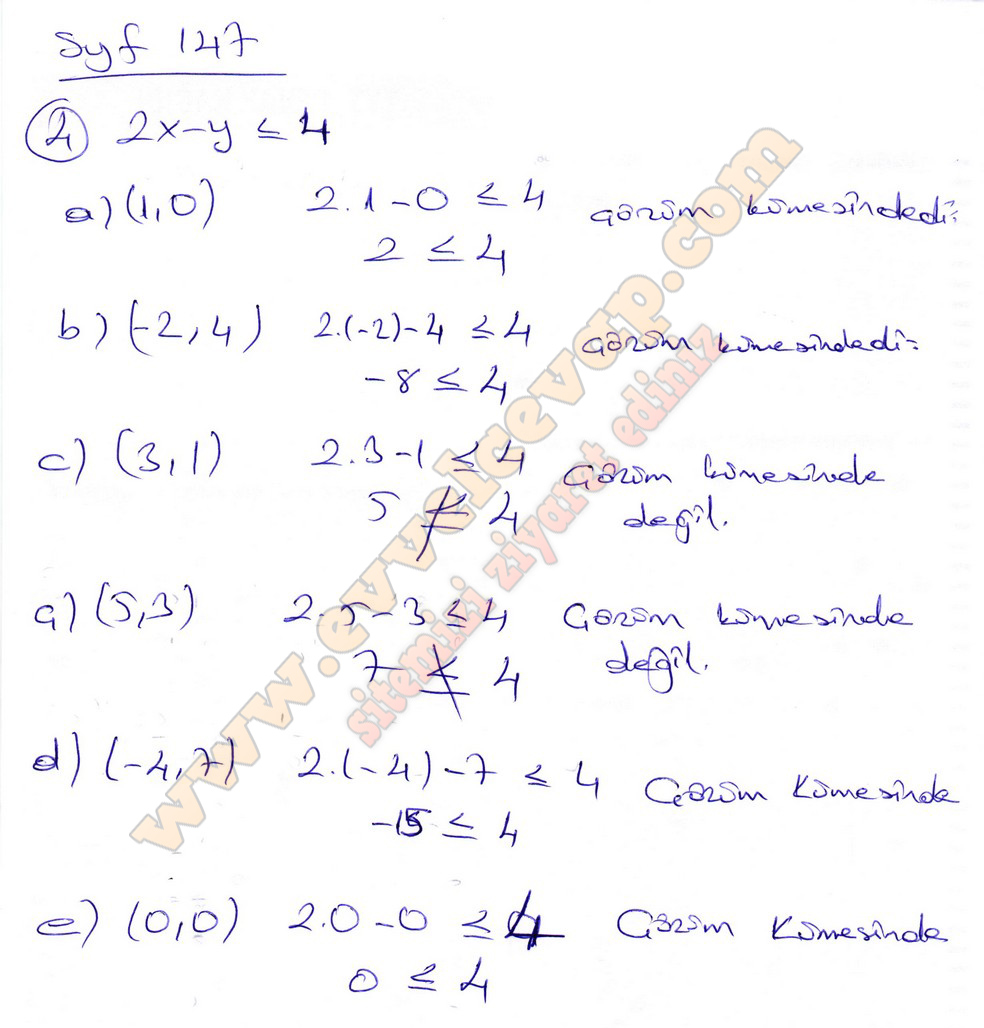 Syf 147
2 2x-y ≤ 4
a) (1,0) 2.1-0 ≤ 4 Çözüm kümesindedir
2 ≤ 4
b) (-2,4) 2.(-2)-4 ≤ 4 Çözüm kümesindedir
-8 ≤ 4
c) (3,1) 2.3-1 ≤ 4 Çözüm kümesinde
5 ≰ 4 değil.
ç) (5,3) 2.5-3 ≤ 4 Çözüm kümesinde
7 ≰ 4 değil.
d) (-4,7) 2.(-4)-7 ≤ 4 Çözüm Kümesinde
-15 ≤ 4
e) (0,0) 2.0-0 ≤ 4 Çözüm Kümesinde
0 ≤ 4
www.evvelcevap.com
sitemizi ziyaret ediniz